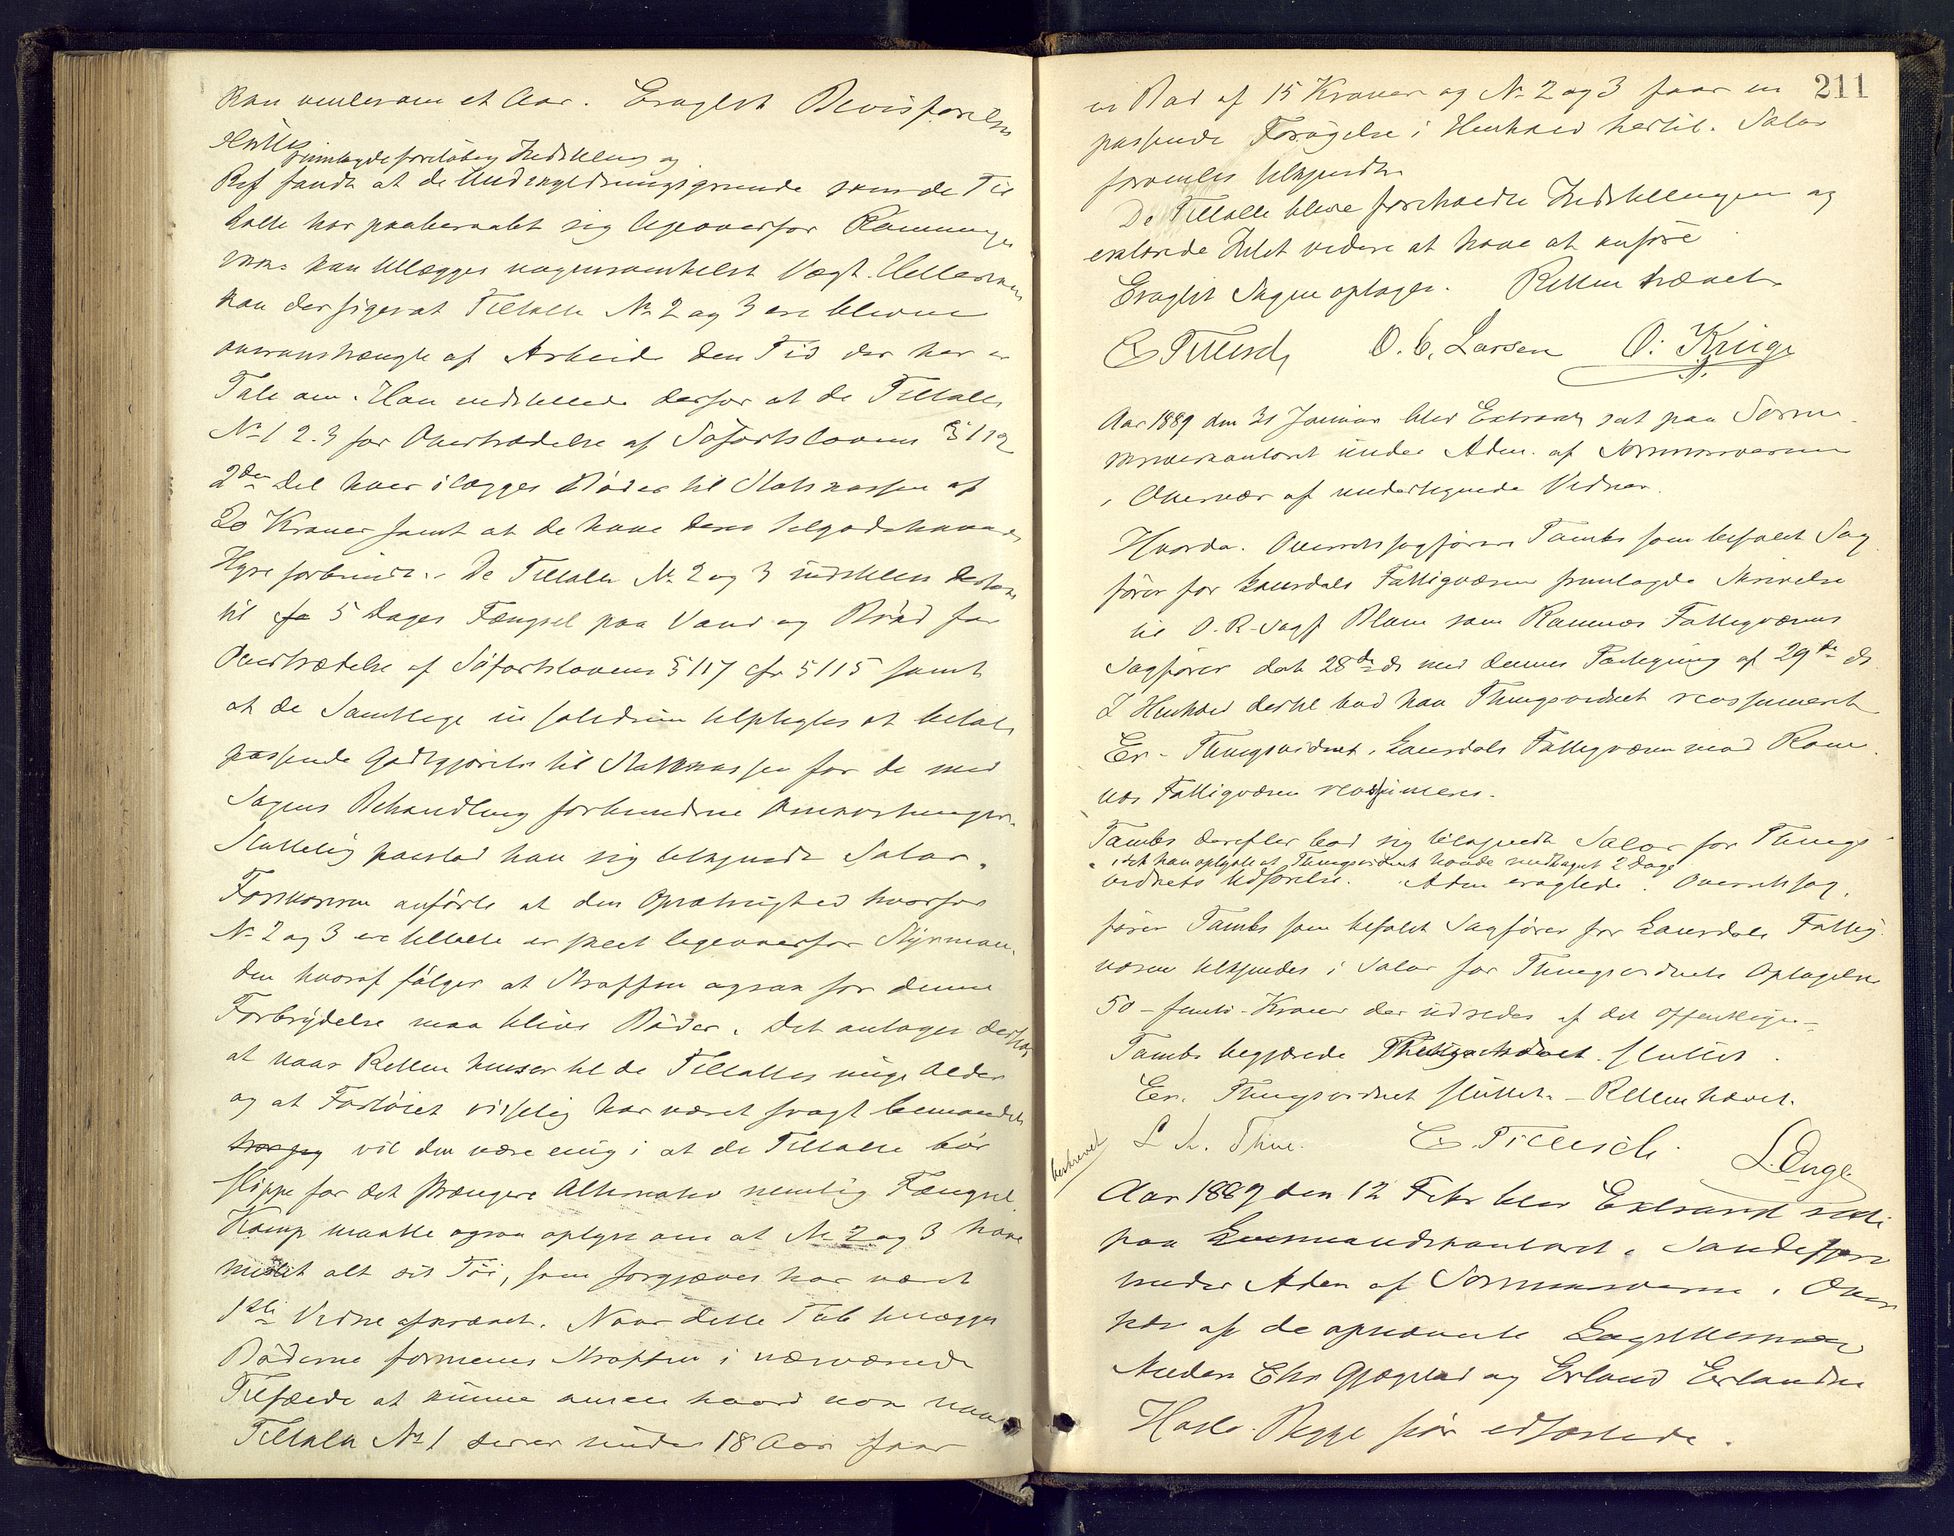 kan omtrent et Aar. Eragtet Bevisførelsen
sluttet
fremlagde foreløbig Indstilling og
Ref fandt at de Undskyldningsgrunde som de Til
talte har paaberaabt sig ligeoverfor Rømningen
ikke kan tillægges nogensomhelst Vægt. Hellerikke
kan der siges at Tiltalte No 2 og 3 ere blevne
overanstrængte af Arbeide den Tid der her er
Tale om. Han indstillede derfor at de Tiltalte
No 1 2. 3 for Overtrædelse af Søfartslovens § 112
2den Del hver ilægges Bøder til Statskassen af
20 Kroner samt at de have deres tilgodehavende
Hyre forbrudt. De Tiltalte No 2 og 3 indstilles desuden
til 5 Dages Fængsel paa Vand og Brød for
Overtrædelse af Søfartslovens § 117 cfr § 115 samt
at de Samtlige in solidum tilpligtes at betale
passende Godtgjørelse til Statskassen for de med
Sagens Behandling forbundne Omkostninger.
Sluttelig paastod han sig tilkjendt Salær.
Forsvareren anførte at den Opsætsighed hvorfor
No 2 og 3 ere tiltalte er skeet ligeoverfor Styrman
den hvoraf følger at Straffen ogsaa for denne
Forbrydelse maa blive Bøder. Det antages derhos
at naar Retten henser til de Tiltaltes unge Alder
og at Fartøiet visselig har været svagt bemandet
vil den være enig i at de Tiltalte bør
slippe for det strængere Alternativ nemlig Fængsel.
Komp maatte ogsaa oplyse om at No 2 og 3 have
mistet alt sit Tøi, som forgjæves har været
1ste Vidne afkrævet. Naar dette Tab tillægges
Bøderne formenes Straffen i nærværende
Tilfælde at kunne ansees haard nok naar
Tiltalte No 1 der er under 18 Aar faar
211
en Bod af 15 Kroner og No 2 og 3 faar en
passende Forøgelse i Henhold hertil. Salær
forventes tilkjendt.
De Tiltalte bleve foreholdte Indstillingen og
erklærede Intet videre at have at anføre
Eragtet Sagen optages. Retten hævet
C Tillisch O. C. Larsen O. Kruge
Aar 1889 den 31 Januar blev Extraret sat paa Soren
skriverkontoret under Adm. af Sorenskriveren
i Overvær af undertegnede Vidner.
Hvorda. Overretssagfører Tambs som befalet Sag
fører for Laurdals Fattigvæsen fremlagde Skrivelse
til O. R. Sagf Blom som Ramnes Fattigvæsens
Sagfører dat 28de ds med dennes Paategning af 29de ds
I Henhold dertil bad han Thingsvidnet reassumeret
Er. Thingsvidnet, Laurdals Fattigvæsen mod Ram
nes Fattigvæsen reassumeres.
Tambs derefter bad sig tilkjendt Salær for Things
idet han oplyste at Thingsvidnet havde medtaget 2 Dage
vidnets Udførelse. Adm eragtede. Overretssag
fører Tambs som befalet Sagfører for Laurdals Fattig
væsen tilkjendes i Salær for Thingsvidnets Optagelse
50 – femti – Kroner der udredes af det Offentlige –
Tambs begjærede Thingsvidnet sluttet.
Er. Thingsvidnet sluttet. – Retten hævet.
beskrevet
C Tillisch. L. Enge
Aar 1889 den 12 Febr blev Extraret sat
paa Lensmandskontoret i Sandefjord
under Adm af Sorenskriveren i Over
vær af de opnævnte Lagrettesmænd
Anders Chr Gjøgstad og Erland Erlandsen
Hasle. Begge før edfæstede.